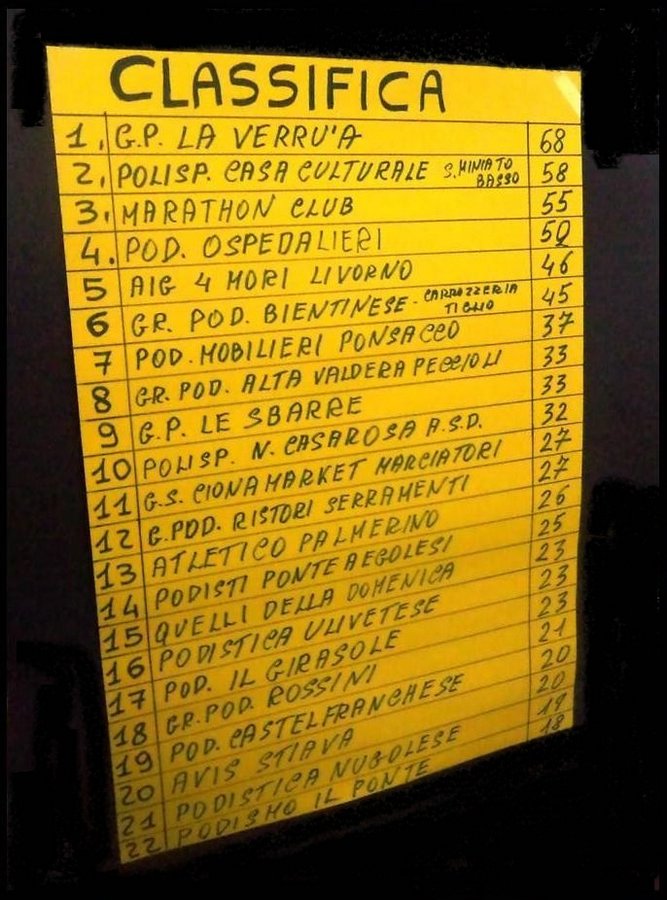 CLASSIFICA
1. G.P. LA VERRU'A 68
2. POLISP. CASA CULTURALE S. MINIATO BASSO 58
3. MARATHON CLUB 55
4. POD. OSPEDALIERI 50
5 AIG 4 MORI LIVORNO 46
6 GR. POD. BIENTINESE - CARROZZERIA TIGLIO 45
7 POD. MOBILIERI PONSACCO 37
8 GR. POD. ALTA VALDERA PECCIOLI 33
9 G.P. LE SBARRE 33
10 POLISP. N. CASAROSA A.S.D. 32
11 G.S. CIONAMARKET MARCIATORI 27
12 G.POD. RISTORI SERRAMENTI 27
13 ATLETICO PALMERINO 26
14 PODISTI PONTEAEGOLESI 25
15 QUELLI DELLA DOMENICA 23
16 PODISTICA ULIVETESE 23
17 POD. IL GIRASOLE 23
18 GR.POD. ROSSINI 21
19 POD. CASTELFRANCHESE 20
20 AVIS STIAVA 20
21 PODISTICA NUGOLESE 19
22 PODISMO IL PONTE 18